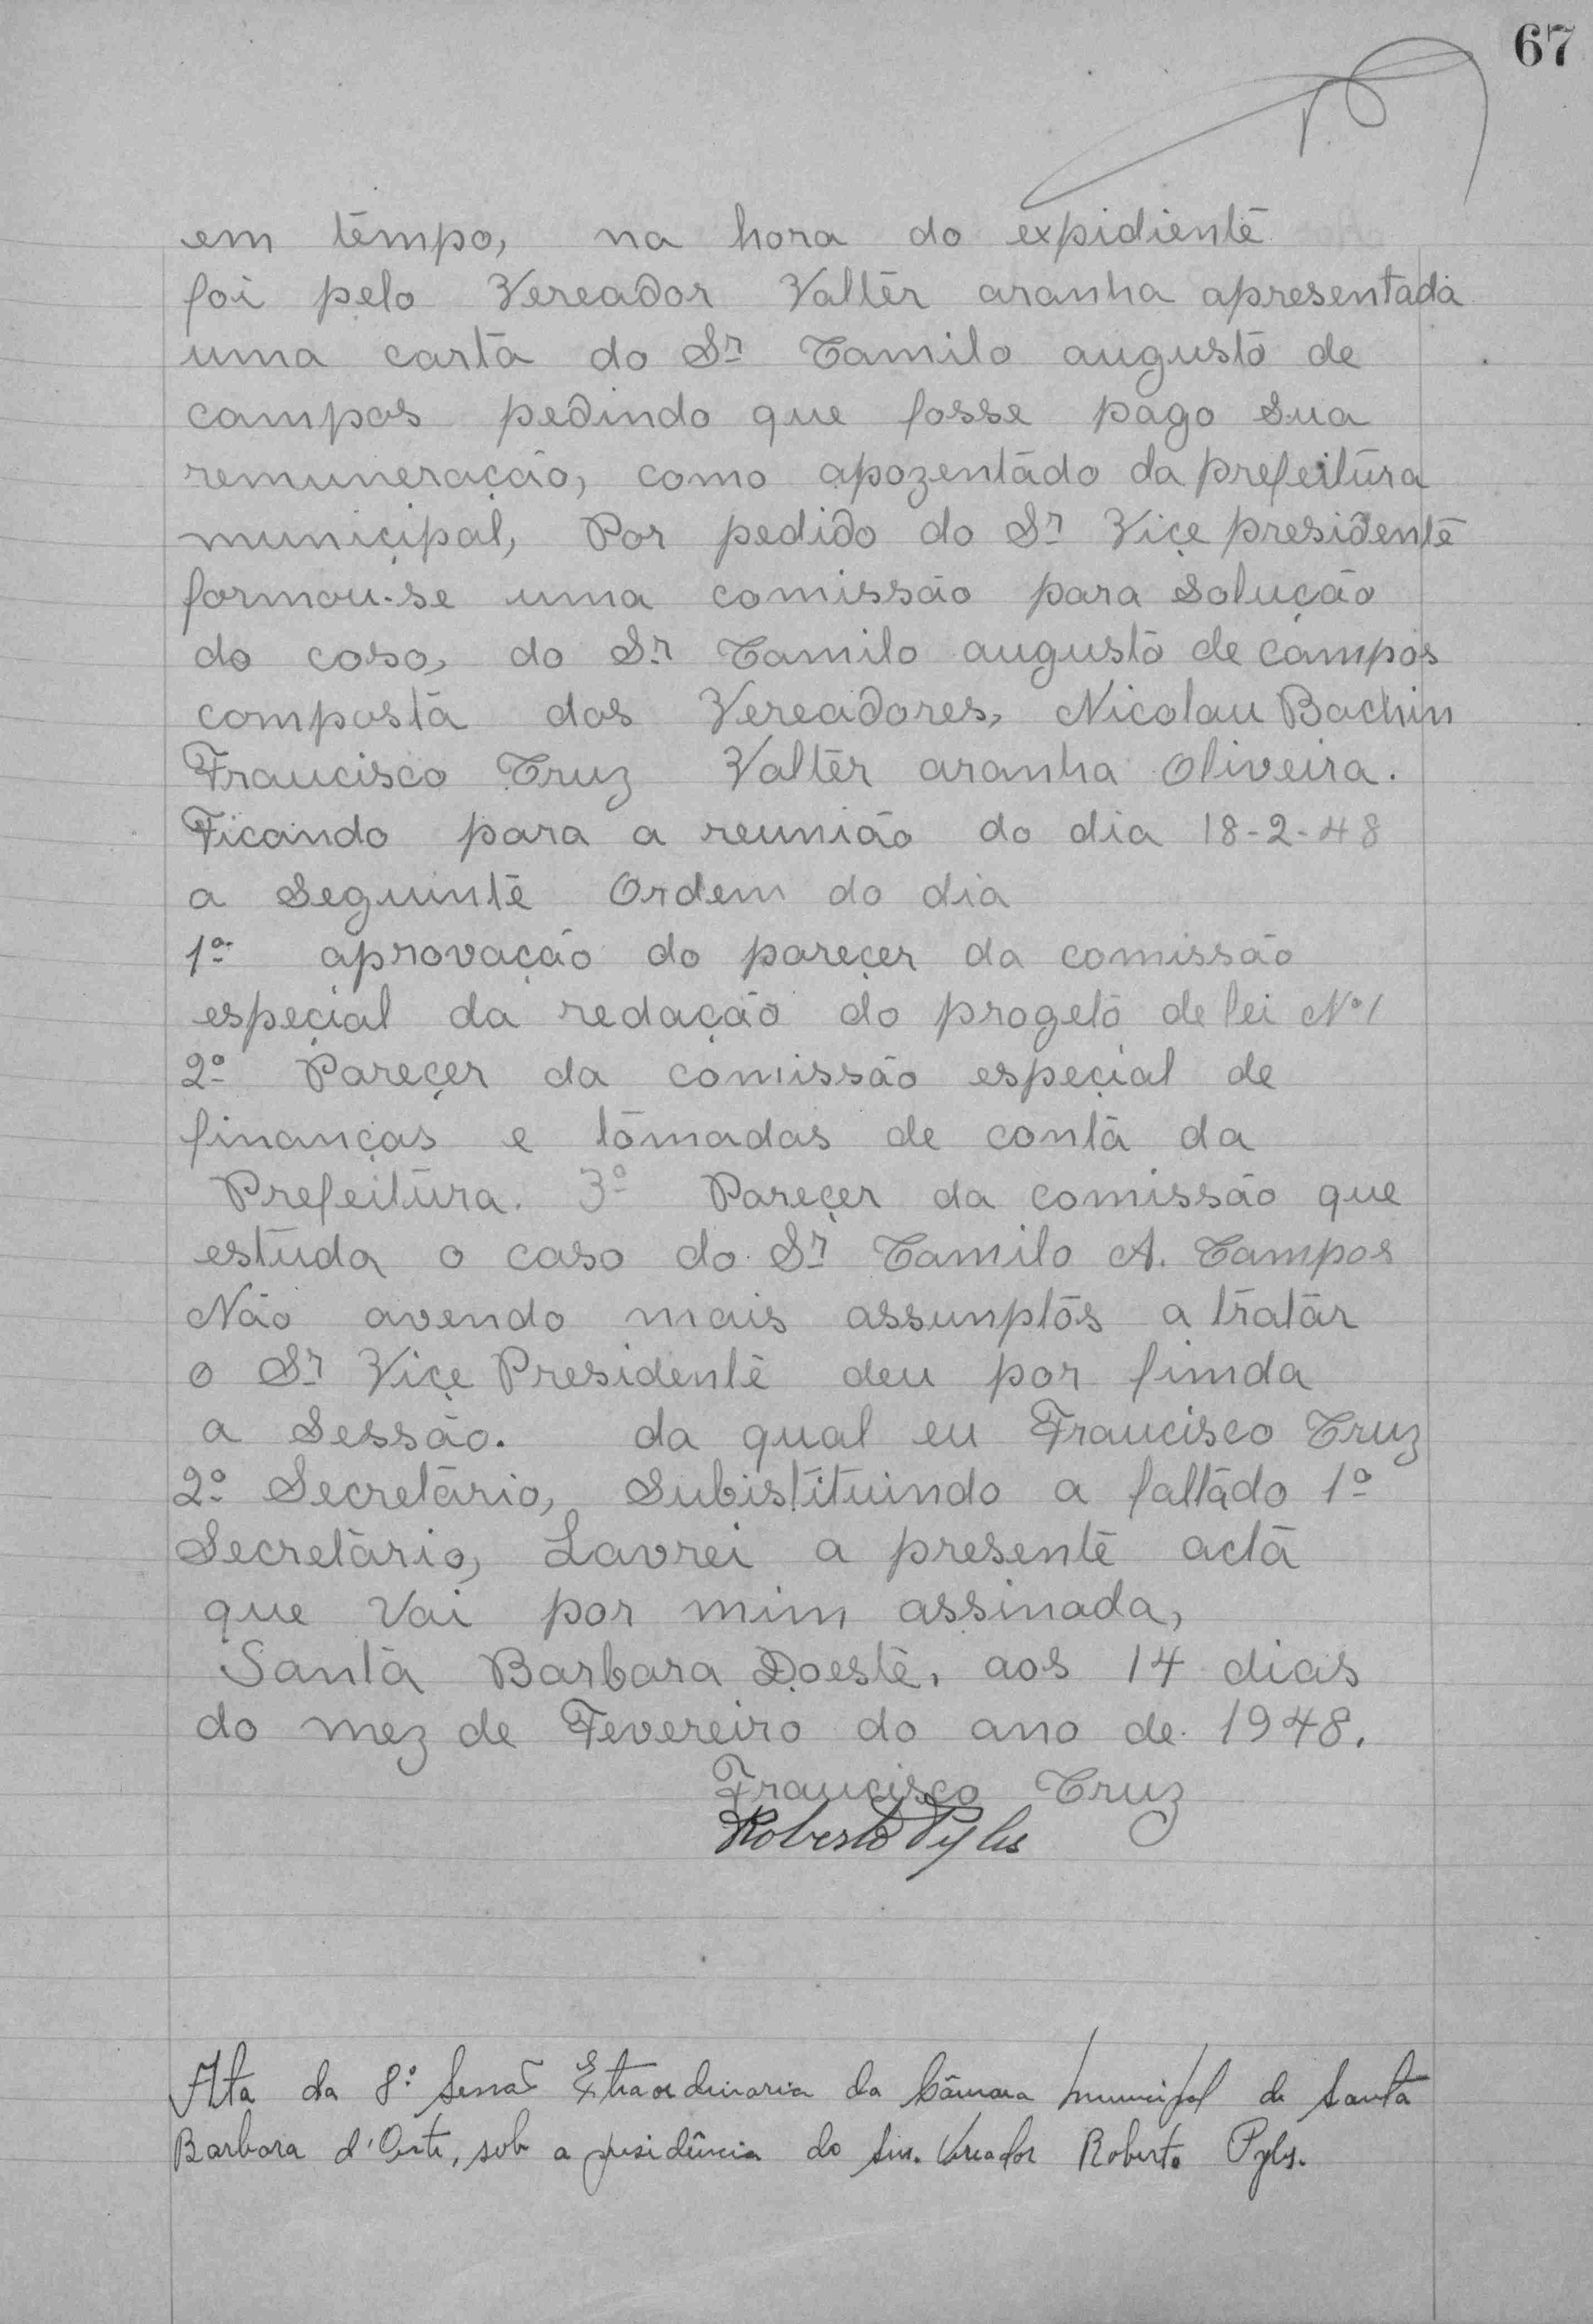 67
em tempo, na hora do expidiente
foi pelo Vereador Valter aranha apresentada
uma carta do Sr Camilo augusto de
campos pedindo que fosse pago sua
remuneração, como apozentado da prefeitura
municipal, Por pedido do Sr Viçe presidente
formou-se uma comissão para Solução
do coso, do Sr Camilo augusto de campos
composta dos Vereadores, Nicolau Bachin
Francisco Cruz Valter aranha Oliveira.
Ficando para a reunião do dia 18-2-48
a Seguinte Ordem do dia
1º aprovação do pareçer da comissão
espeçial da redação do progeto de lei Nº 1
2º Pareçer da comissão espeçial de
finanças e tomadas de conta da
Prefeitura. 3º Pareçer da comissão que
estuda o caso do Sr Camilo A. Campos
Não avendo mais assumptos a tratar
o Sr Viçe Presidente deu por finda
a Sessão. da qual eu Francisco Cruz
2º Secretario, Subistituindo a falta do 1º
Secretario, Lavrei a presente acta
que Vai por mim assinada,
Santa Barbara Doeste, aos 14 dias
do mez de Fevereiro do ano de 1948.
Francisco Cruz
Roberto Pyles
Ata da 8ª Sessão Extraordinaria da Câmara Municipal de Santa
Barbara d'Oeste, sob a presidência do Snr. Vereador Roberto Pyles.